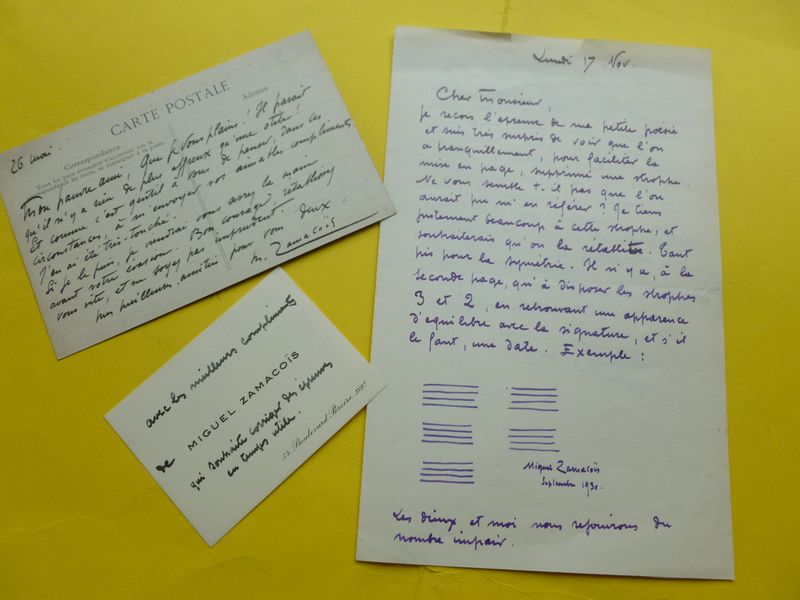 CARTE POSTALE
Correspondance
Adresse
26 mai.
Mon pauvre ami, que je vous plains! Il paraît
qu'il n'y a rien de plus affreux qu'une otite!
Et comme c'est gentil à vous de penser, dans ces
circonstances, à m'envoyer vos aimables compliments
J'en ai été très touché.
Si je le puis, je viendrai vous serrer la main
avant votre évasion. Bon courage, rétablissez
vous vite, et ne soyez pas imprudent.
mes meilleures amitiés pour vous deux
M. Zamacoïs
avec les meilleurs compliments
de MIGUEL ZAMACOÏS
qui souhaite corriger des épreuves
en temps utile.
Boulevard Pereire, XVIIe
Lundi 17 Nov.
Cher Monsieur,
je reçois l'épreuve de ma petite poésie
et suis très surpris de voir que l'on
a tranquillement, pour faciliter la
mise en page, supprimé une strophe.
Ne vous semble-t-il pas que l'on
aurait pu m'en référer? Je tiens
justement beaucoup à cette strophe, et
souhaiterais qu'on la rétablît. Tant
pis pour la symétrie. Il n'y a, à la
seconde page, qu'à disposer les strophes
3 et 2, en retrouvant une apparence
d'équilibre avec la signature, et s'il
le faut, une date. Exemple:
Miguel Zamacoïs
Septembre 1930.
Les dieux et moi nous réjouirons du
nombre impair.